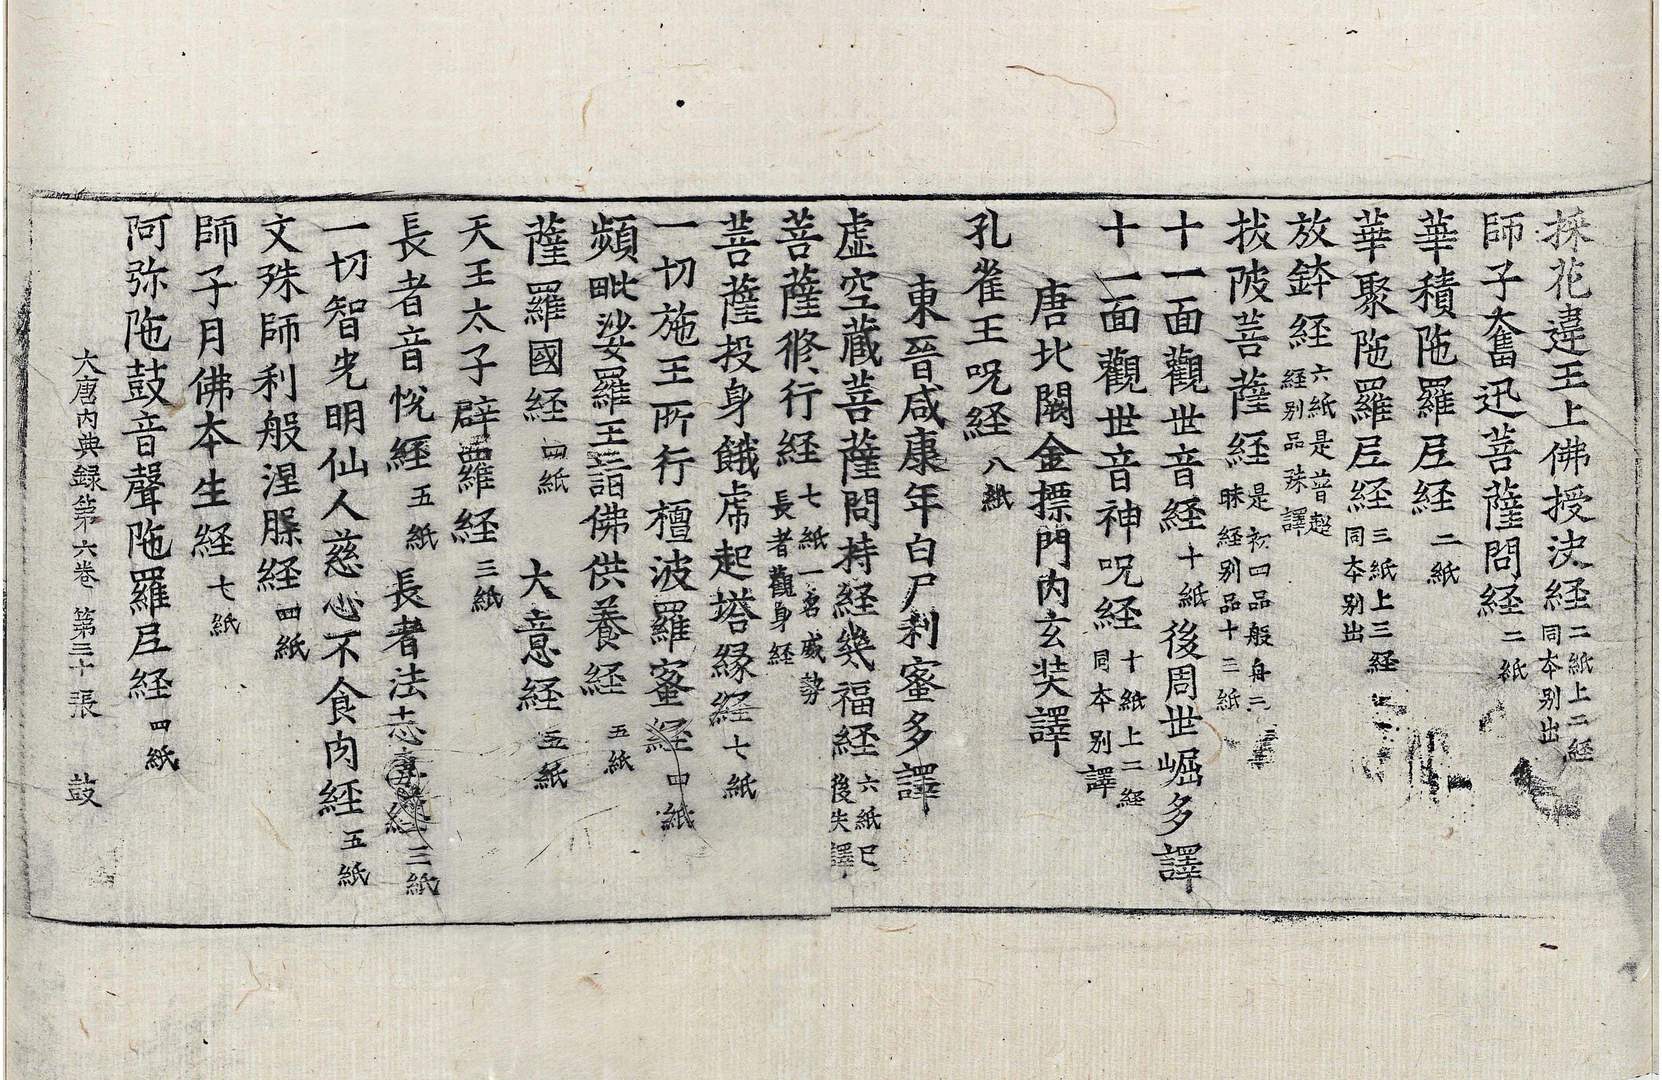 採花違王上佛授決経二紙上二経同本別出
師子奮迅菩薩問経二紙
華積陁羅𡰱経二紙
華聚陁羅𡰱経三紙上三経同本别出
放鉢経六紙是普超経别品殊譯
拔陂菩薩経是初四品般舟三昧経别品十三紙
十一面觀世音経十紙後周世崛多譯
十一面觀世音神呪経十紙上二経同本别譯
唐北闕金摽門内玄奘譯
孔雀王呪経八紙
東晉咸康年白尸利蜜多譯
虛空藏菩薩問持経幾福経六紙已後失譯
菩薩修行経七紙一名威勢長者觀身経
菩薩投身餓虎起塔縁経七紙
一切施王所行檀波羅蜜経四紙
頻毗娑羅王詣佛供養経五紙
薩羅國経四紙 大意経五紙
天王太子辟羅経三紙
長者音悅経五紙 長者法志妻経三紙
一切智光明仙人慈心不食肉経五紙
文殊師利般涅槃経四紙
師子月佛本生経七紙
阿弥陁鼓音聲陁羅𡰱経四紙
大唐内典録第六卷 第三十張 鼓